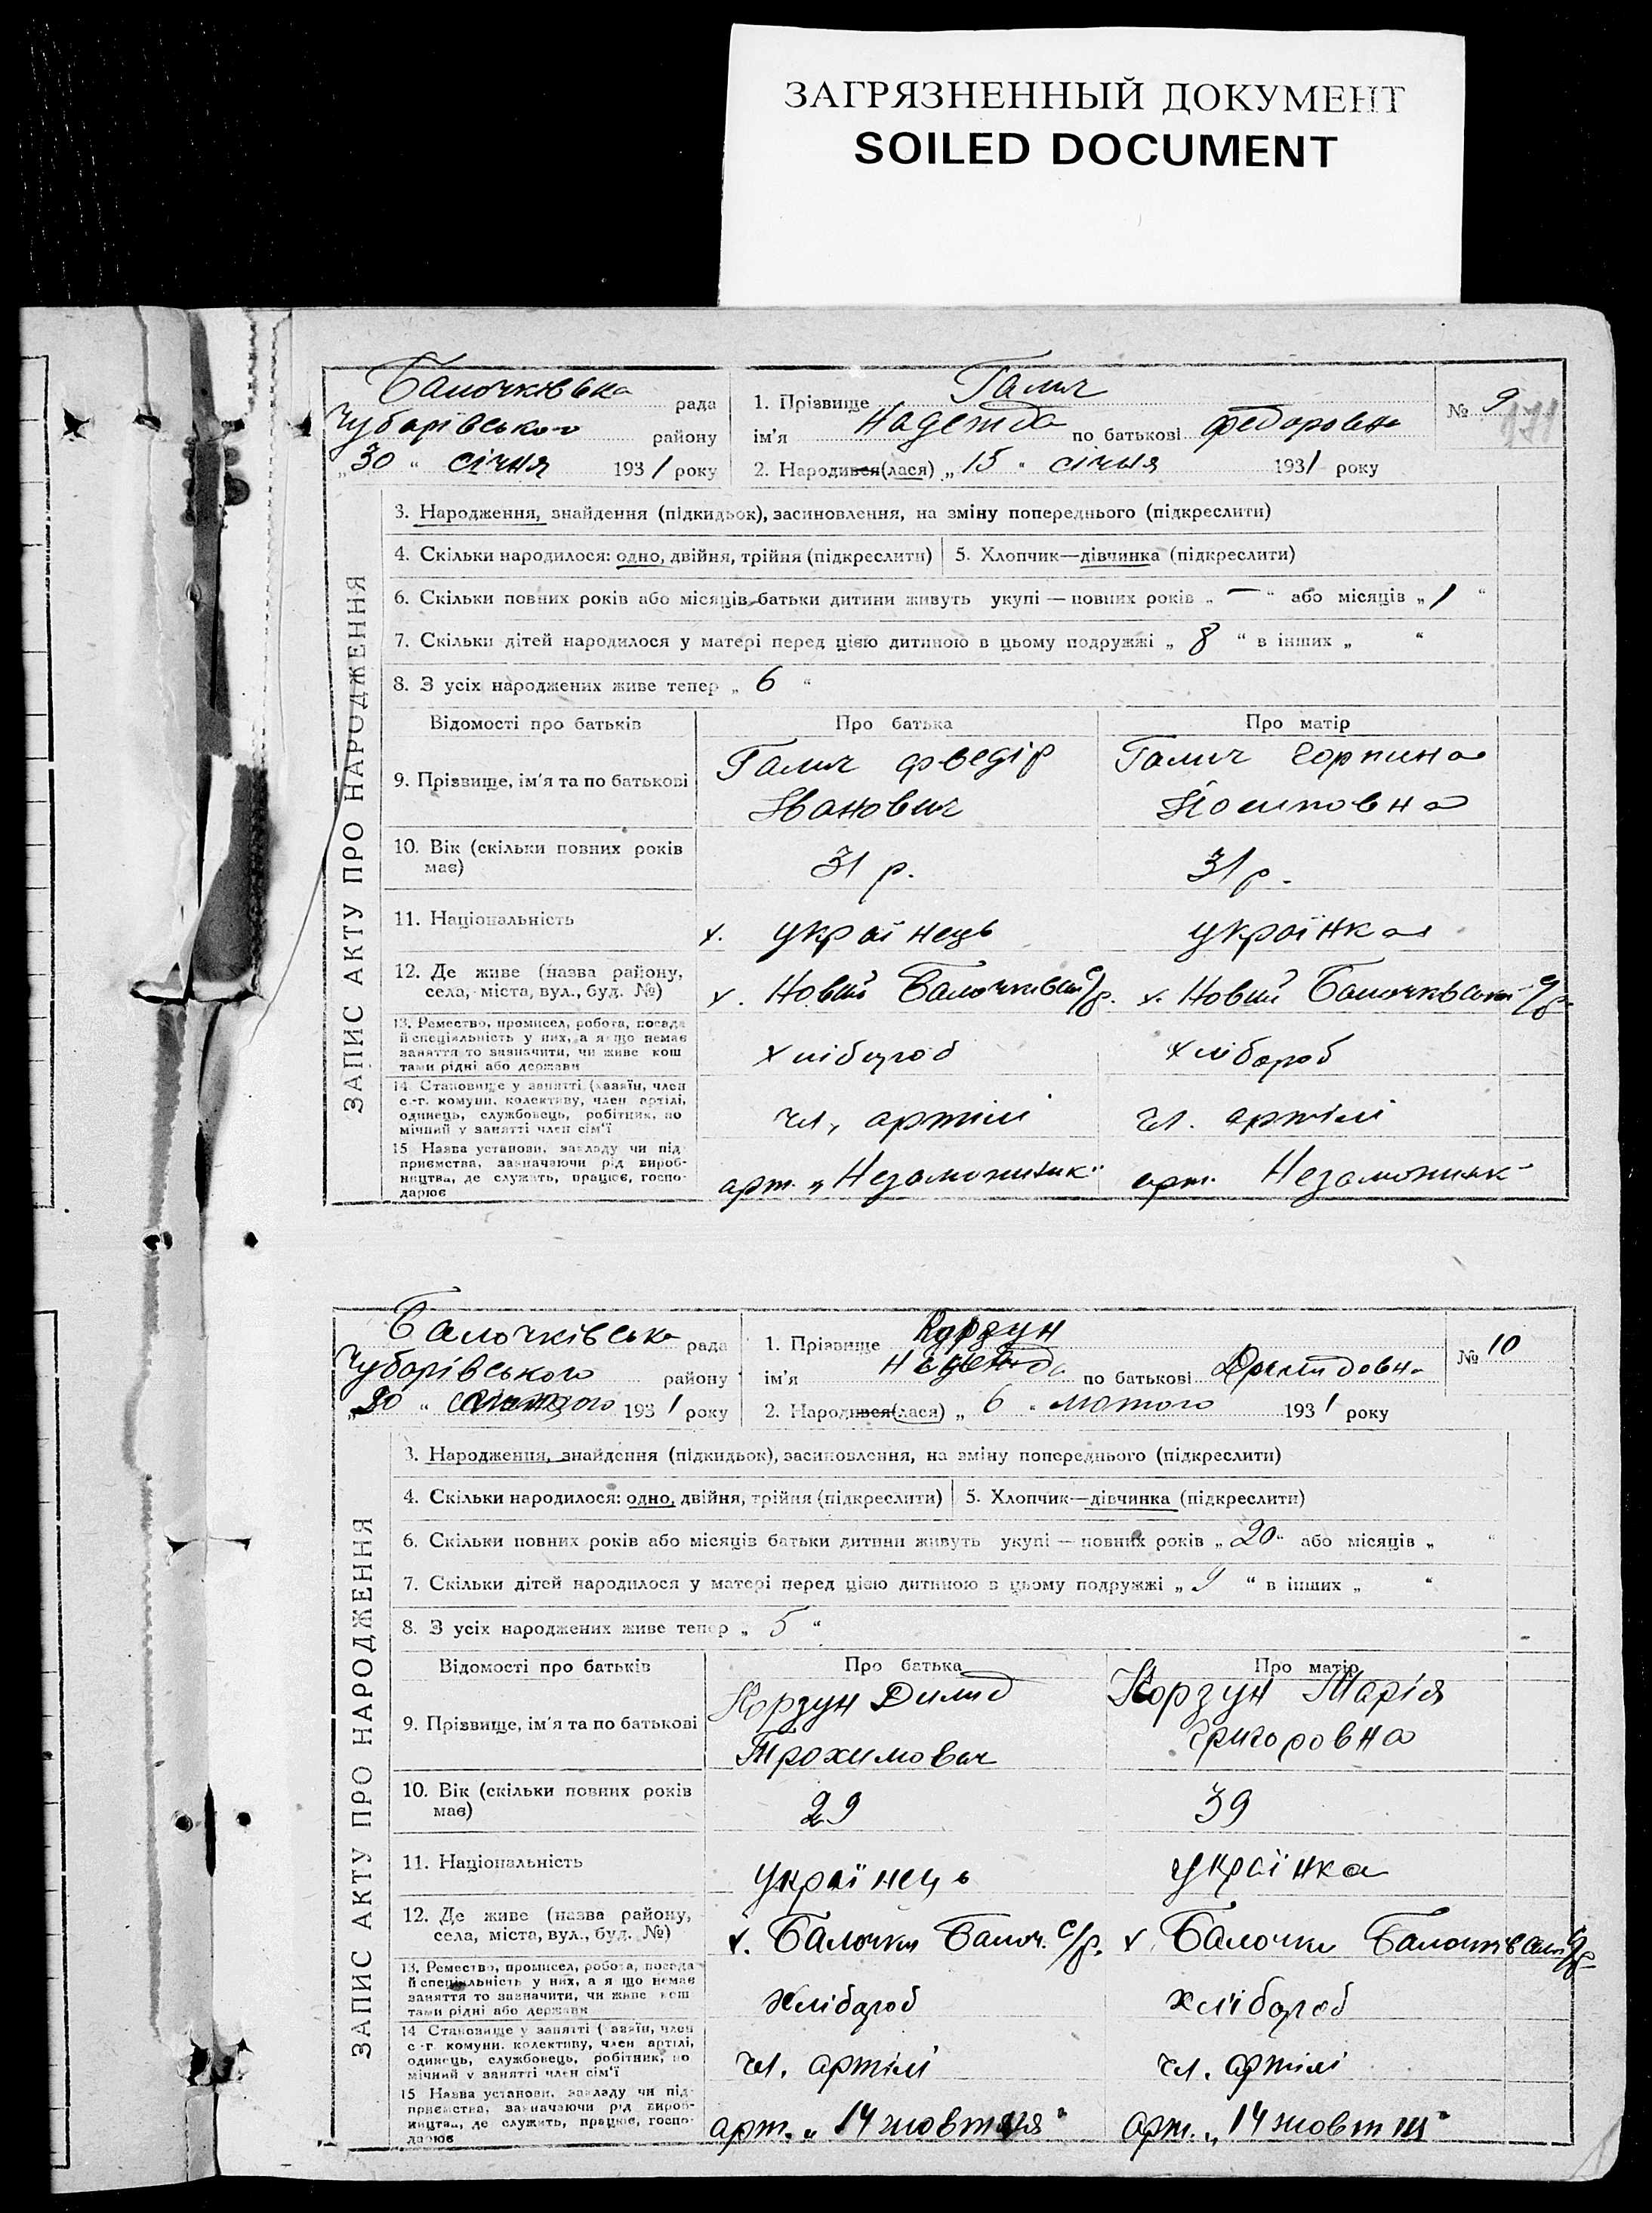 ЗАГРЯЗНЕННЫЙ ДОКУМЕНТ
SOILED DOCUMENT
Балочківська рада
Чубарівського району
„30“ січня 1931 року
1. Прізвище Галич
ім'я Надежда по батькові Федоровна
2. Народився(лася) „15“ січня 1931 року
№ 9
ЗАПИС АКТУ ПРО НАРОДЖЕННЯ
3. Народження, знайдення (підкидьок), засиновлення, на зміну попереднього (підкреслити)
4. Скільки народилося: одно, двійня, трійня (підкреслити) 5. Хлопчик—дівчинка (підкреслити)
6. Скільки повних років або місяців батьки дитини живуть укупі — повних років „—“ або місяців „1“
7. Скільки дітей народилося у матері перед цією дитиною в цьому подружжі „8“ в інших „ “
8. З усіх народжених живе тепер „6“
Відомості про батьків Про батька Про матір
9. Прізвище, ім'я та по батькові Галич Федір Іванович Галич Горпина Йосиповна
10. Вік (скільки повних років має) 31 р. 31 р.
11. Національність х. українець українка
12. Де живе (назва району, села, міста, вул., буд. №) х. Новий с/р. х. Новий с/р.
13. Ремество, промисел, робота, посада й спеціяльність у них, а якщо немає заняття то зазначити, чи живе коштами рідні або держави хлібороб хлібороб
14. Становище у занятті (хазяїн, член с.-г. комуни, колективу, член артілі, одинець, службовець, робітник, помічний у занятті член сім'ї чл. артілі чл. артілі
15. Назва установи, закладу чи підприємства, зазначаючи рід виробництва, де служить, працює, господарює арт. „Незаможник“ арт. Незаможник“
Балочківська рада
Чубарівського району
„20“ 1931 року
1. Прізвище Корзун
ім'я Надежда по батькові Демидовна
2. Народився(лася) „6“ лютого 1931 року
№ 10
ЗАПИС АКТУ ПРО НАРОДЖЕННЯ
3. Народження, знайдення (підкидьок), засиновлення, на зміну попереднього (підкреслити)
4. Скільки народилося: одно, двійня, трійня (підкреслити) 5. Хлопчик—дівчинка (підкреслити)
6. Скільки повних років або місяців батьки дитини живуть укупі — повних років „20“ або місяців „ “
7. Скільки дітей народилося у матері перед цією дитиною в цьому подружжі „9“ в інших „ “
8. З усіх народжених живе тепер „5“
Відомості про батьків Про батька Про матір
9. Прізвище, ім'я та по батькові Корзун Димид Трохимович Корзун Марія Григоровна
10. Вік (скільки повних років має) 29 39
11. Національність українець українка
12. Де живе (назва району, села, міста, вул., буд. №) х. Балочки Балоч. с/р. х. Балочки с/р.
13. Ремество, промисел, робота, посада й спеціяльність у них, а якщо немає заняття то зазначити, чи живе коштами рідні або держави хлібороб хлібороб
14. Становище у занятті (хазяїн, член с.-г. комуни, колективу, член артілі, одинець, службовець, робітник, помічний у занятті член сім'ї чл. артілі чл. артілі
15. Назва установи, закладу чи підприємства, зазначаючи рід виробництва, де служить, працює, господарює арт. „14 жовтня“ арт. „14 жовтня“